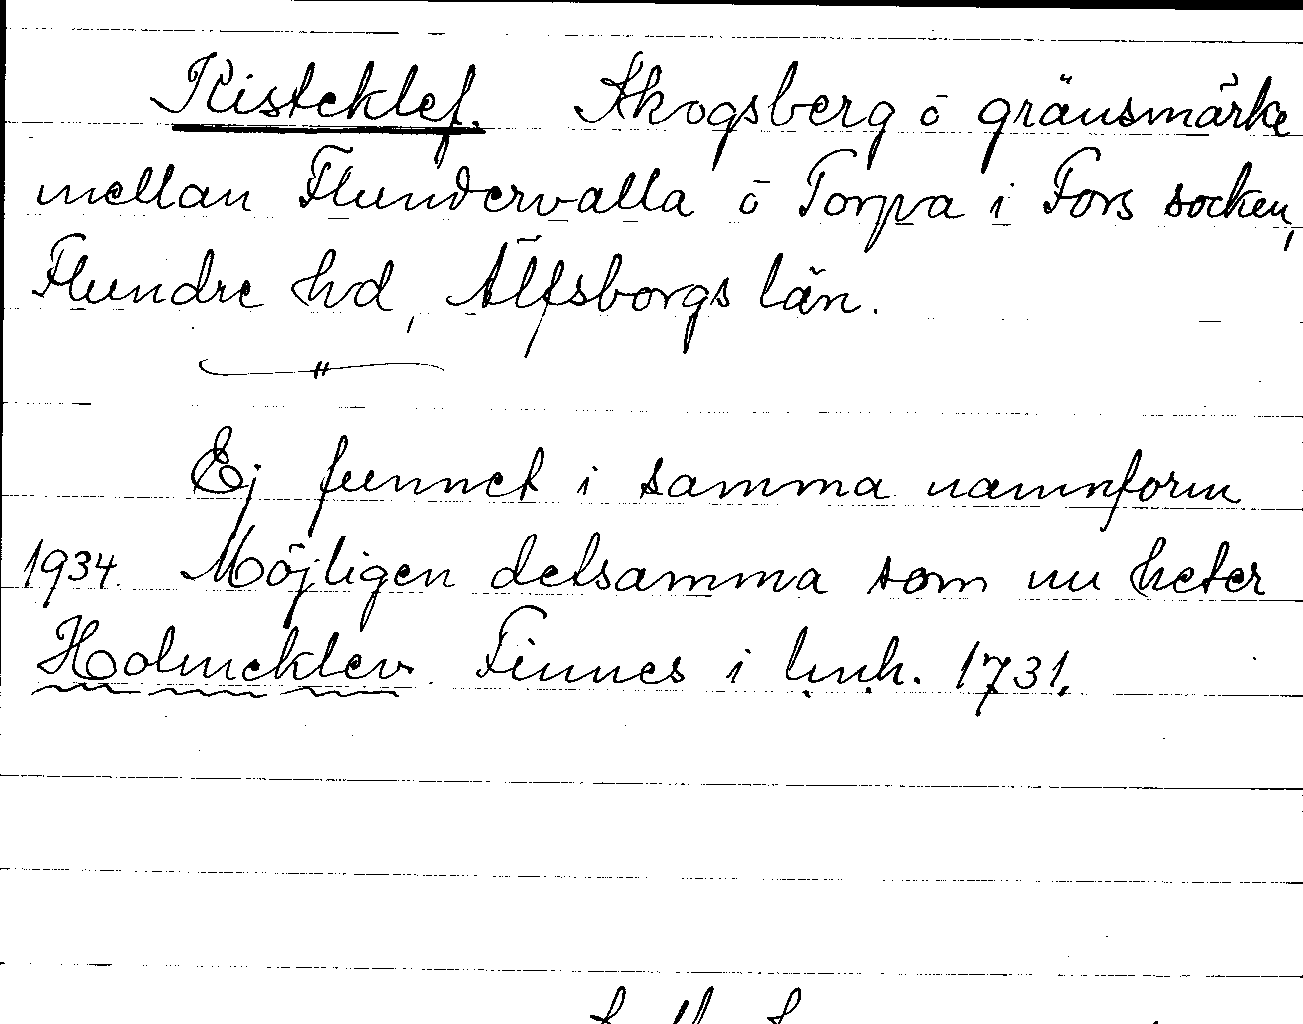 Risteklef. Skogsberg ö gränsmärke
mellan Flundervalla ö Torpa i Fors socken,
Flundre hd, Älfsborgs län.
"
Ej funnet i samma namnform
1934. Möjligen detsamma som nu heter
Holmeklev. Finnes i lmh. 1731.